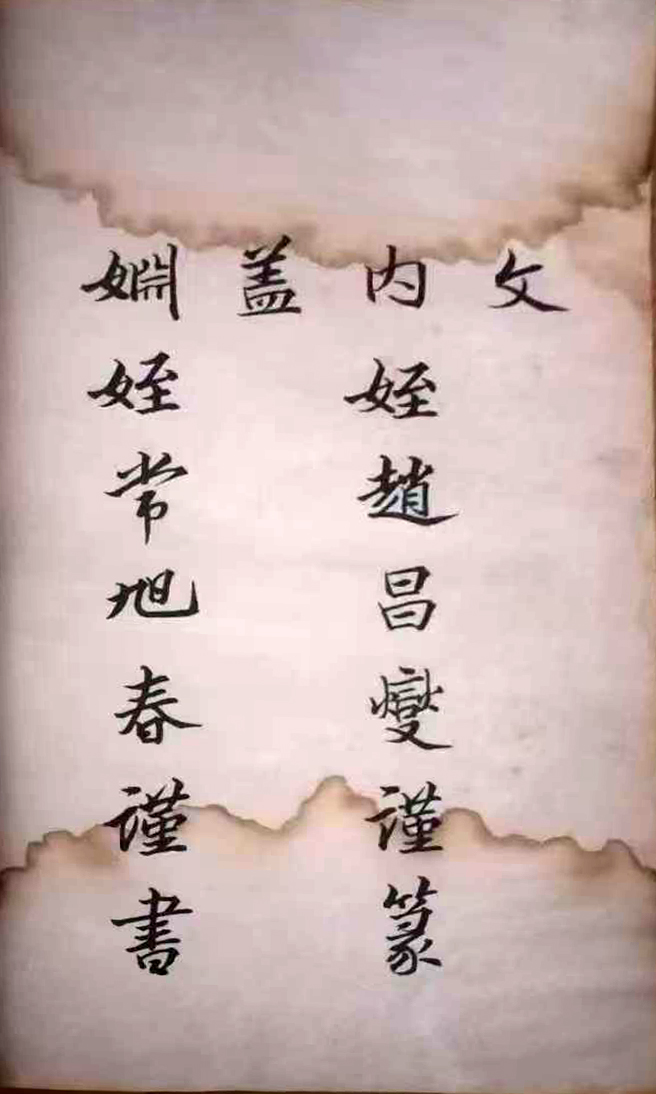 文
内姪趙昌燮謹篆
盖
嫻姪常旭春謹書